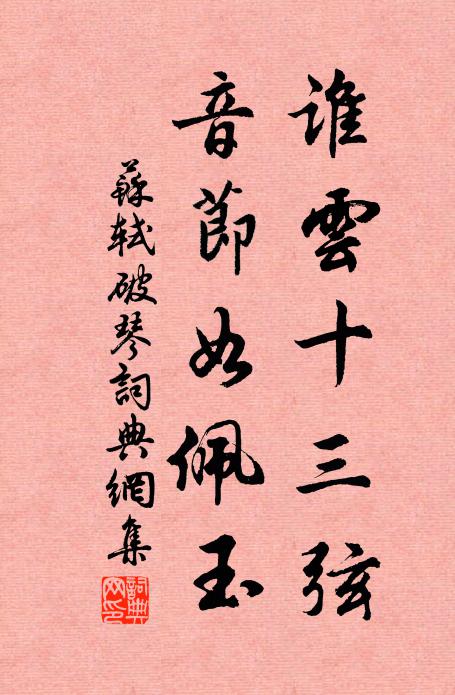 誰雲十三弦
音節如佩玉
蘇軾破琴詞典網集
詞典
网印